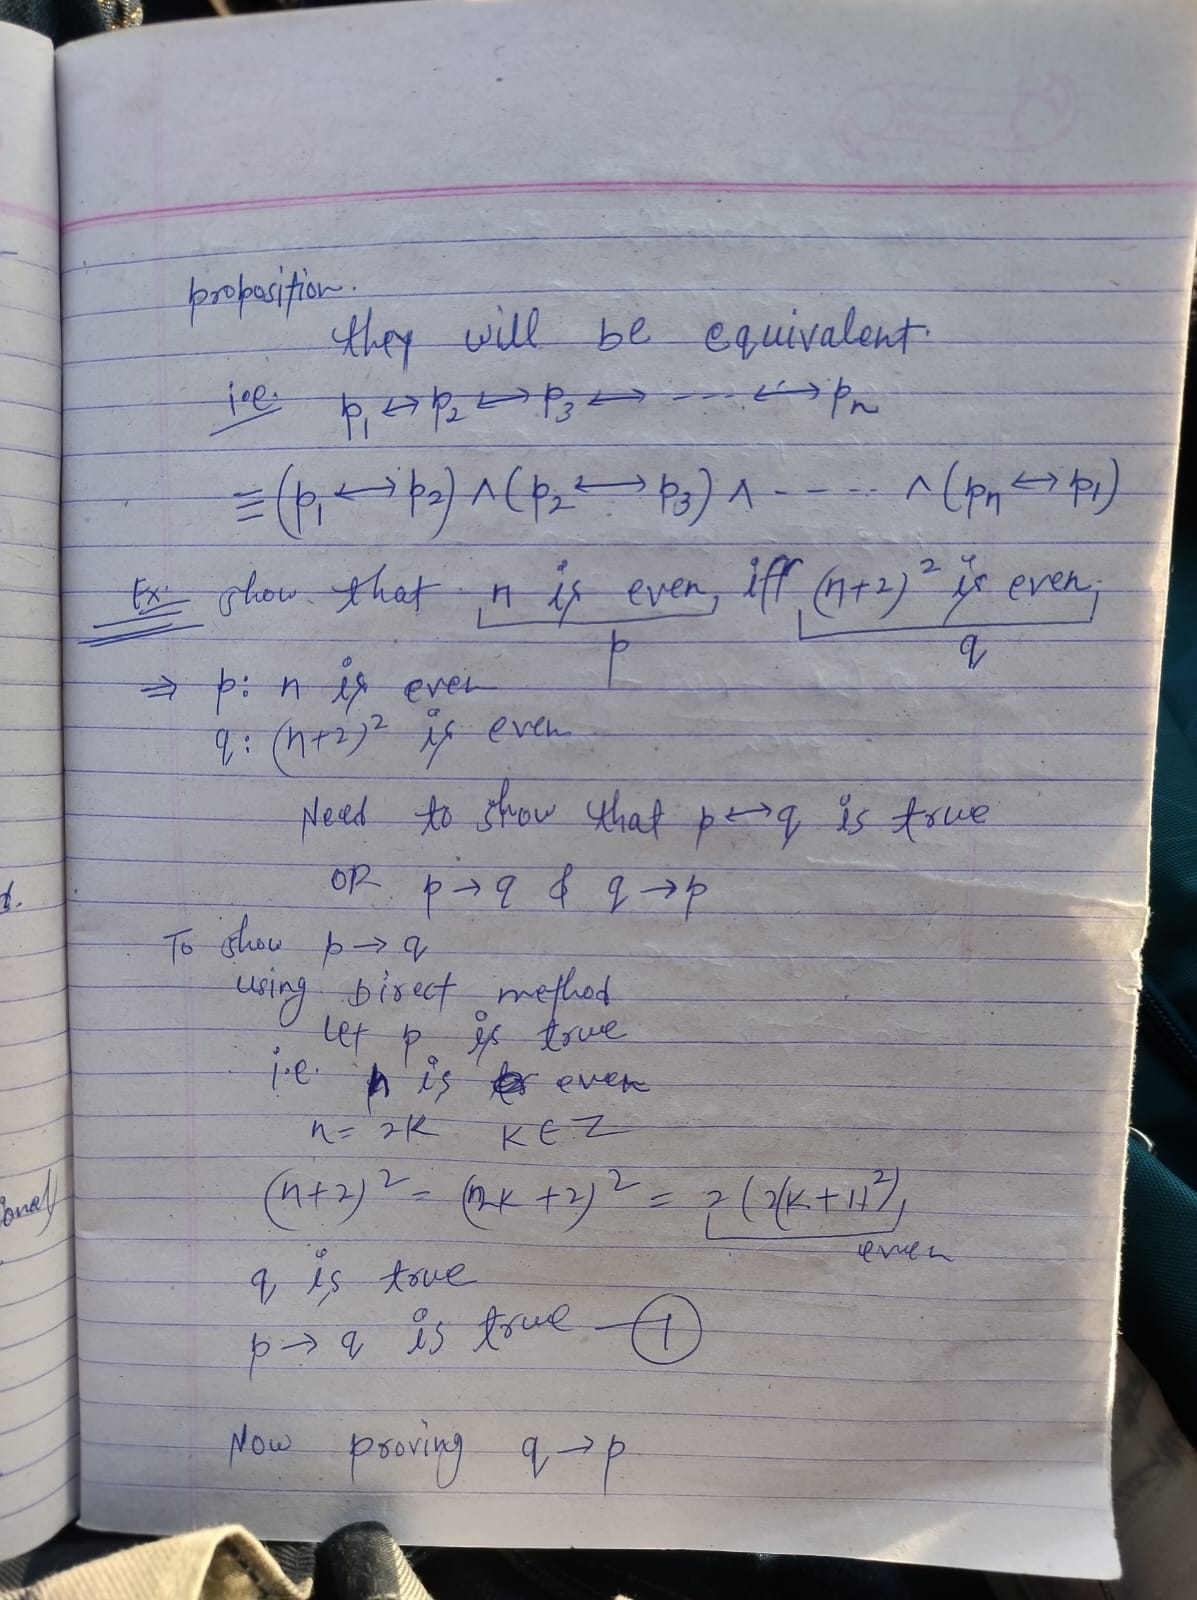 proposition.
they will be equivalent.
i.e. p₁ ↔ p₂ ↔ p₃ ↔ ---- ↔ pₙ
≡ (p₁ ↔ p₂) ∧ (p₂ ↔ p₃) ∧ ----- ∧ (pₙ ↔ p₁)
Ex: show that n is even, iff (n+2)² is even.
p q
⇒ p: n is even
q: (n+2)² is even
Need to show that p ↔ q is true
OR p → q & q → p
To show p → q
using Direct method
Let p is true
i.e. n is even
n = 2k k ∈ Z
(n+2)² = (2k+2)² = 2(2(k+1)²)
even
q is true
p → q is true — ①
Now proving q → p